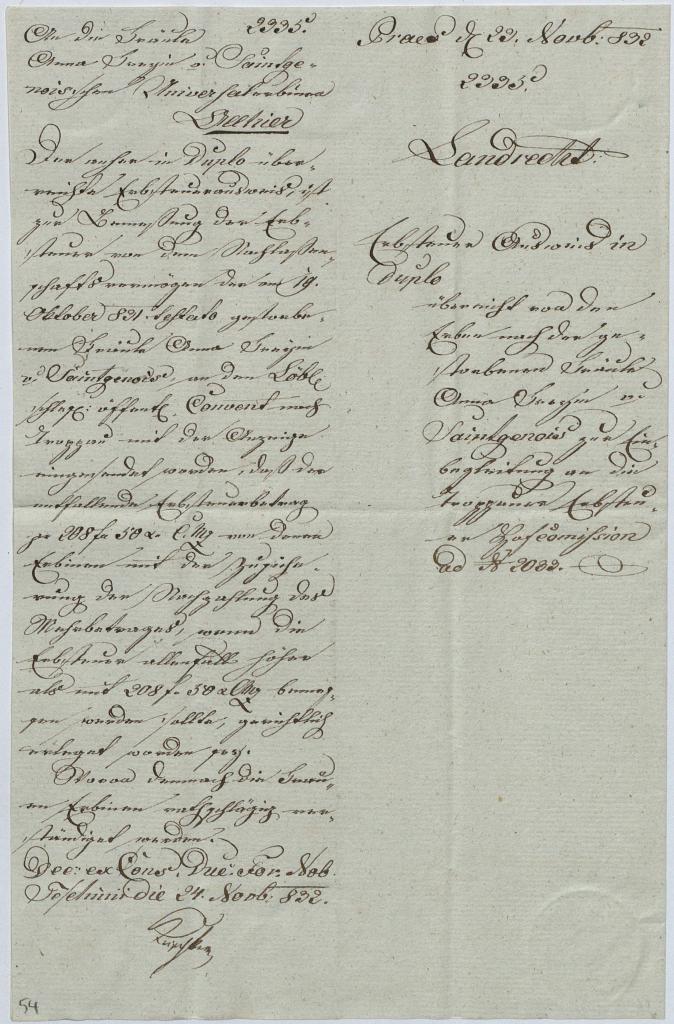 An die Fräule 2335.
Anna Freyin v. Saintge-
noisischen Universalerbinen
Bechier
Der anher in Duplo über-
reichte Erbsteuerausweis, ist
zur Bemessung der Erb-
steuer von dem Nachlassen-
schaftsvermögen der am 19.
Oktober 831 testato gestorbe-
nen Fräule Anna Freyin
v. Saintgenois, an den Löbl.
schles: öffentl. Convent nach
Troppau mit der Anzeige
eingesendet worden, daß der
entfallende Erbsteuerbetrag
pr 208 f 50 x C.Mz von denen
Erbinen mit der Zusiche-
rung der Nachzahlung des
Mehrbetrages, wenn die
Erbsteuer allenfalls höher
als mit 208 f 50 x CMz bemes-
sen werden sollte, gerichtlich
erleget worden sey.
Wovon demnach die Frau-
en Erbinen rathschlägig ver-
ständiget werden.
Dec: ex Cons. Duc. For. Nob.
Teschinii die 24. Novb. 832.
Praes d 23. Novb: 832
2335.
Landrecht.
Erbsteuer Ausweis in
Duplo
überreicht von den
Erben nach der ge-
storbenen Fräule
Anna Freyin v.
Saintgenois zur Ein-
begleitung an die
Troppauer Erbsteu-
er Hofcomission
ad N 2033.
54